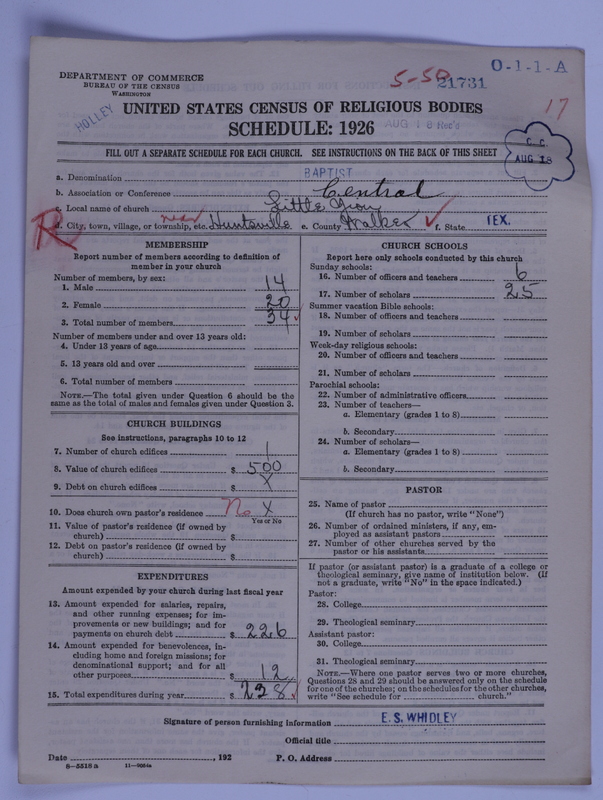 DEPARTMENT OF COMMERCE
BUREAU OF THE CENSUS
WASHINGTON
HOLLEY
5-50
21731
0-1-1-A
17
UNITED STATES CENSUS OF RELIGIOUS BODIES
SCHEDULE: 1926
AUG 18 Rec'd
C. C.
AUG 18
FILL OUT A SEPARATE SCHEDULE FOR EACH CHURCH. SEE INSTRUCTIONS ON THE BACK OF THIS SHEET
a. Denomination BAPTIST
b. Association or Conference Central
c. Local name of church Little Zion
R
d. City, town, village, or township, etc. near Huntsville e. County Walker f. State TEX.
MEMBERSHIP
Report number of members according to definition of
member in your church
Number of members, by sex:
1. Male 14
2. Female 20
3. Total number of members 34
Number of members under and over 13 years old:
4. Under 13 years of age
5. 13 years old and over
6. Total number of members
NOTE.—The total given under Question 6 should be the
same as the total of males and females given under Question 3.
CHURCH BUILDINGS
See instructions, paragraphs 10 to 12
7. Number of church edifices 1
8. Value of church edifices $ 500
9. Debt on church edifices $ X
10. Does church own pastor's residence? No X
Yes or No
11. Value of pastor's residence (if owned by
church) $
12. Debt on pastor's residence (if owned by
church) $
EXPENDITURES
Amount expended by your church during last fiscal year
13. Amount expended for salaries, repairs,
and other running expenses; for im-
provements or new buildings; and for
payments on church debt $ 226
14. Amount expended for benevolences, in-
cluding home and foreign missions; for
denominational support; and for all
other purposes $ 12
15. Total expenditures during year $ 238
CHURCH SCHOOLS
Report here only schools conducted by this church
Sunday schools:
16. Number of officers and teachers 6
17. Number of scholars 25
Summer vacation Bible schools:
18. Number of officers and teachers
19. Number of scholars
Week-day religious schools:
20. Number of officers and teachers
21. Number of scholars
Parochial schools:
22. Number of administrative officers
23. Number of teachers—
a. Elementary (grades 1 to 8)
b. Secondary
24. Number of scholars—
a. Elementary (grades 1 to 8)
b. Secondary
PASTOR
25. Name of pastor
(If church has no pastor, write "None")
26. Number of ordained ministers, if any, em-
ployed as assistant pastors
27. Number of other churches served by the
pastor or his assistants
If pastor (or assistant pastor) is a graduate of a college or
theological seminary, give name of institution below. (If
not a graduate, write "No" in the space indicated.)
Pastor:
28. College
29. Theological seminary
Assistant pastor:
30. College
31. Theological seminary
NOTE.—Where one pastor serves two or more churches,
Questions 28 and 29 should be answered only on the schedule
for one of the churches; on the schedules for the other churches,
write "See schedule for church."
Signature of person furnishing information E. S. WHIDLEY
Official title
Date , 192 P. O. Address
8—5518 a 11—9054a